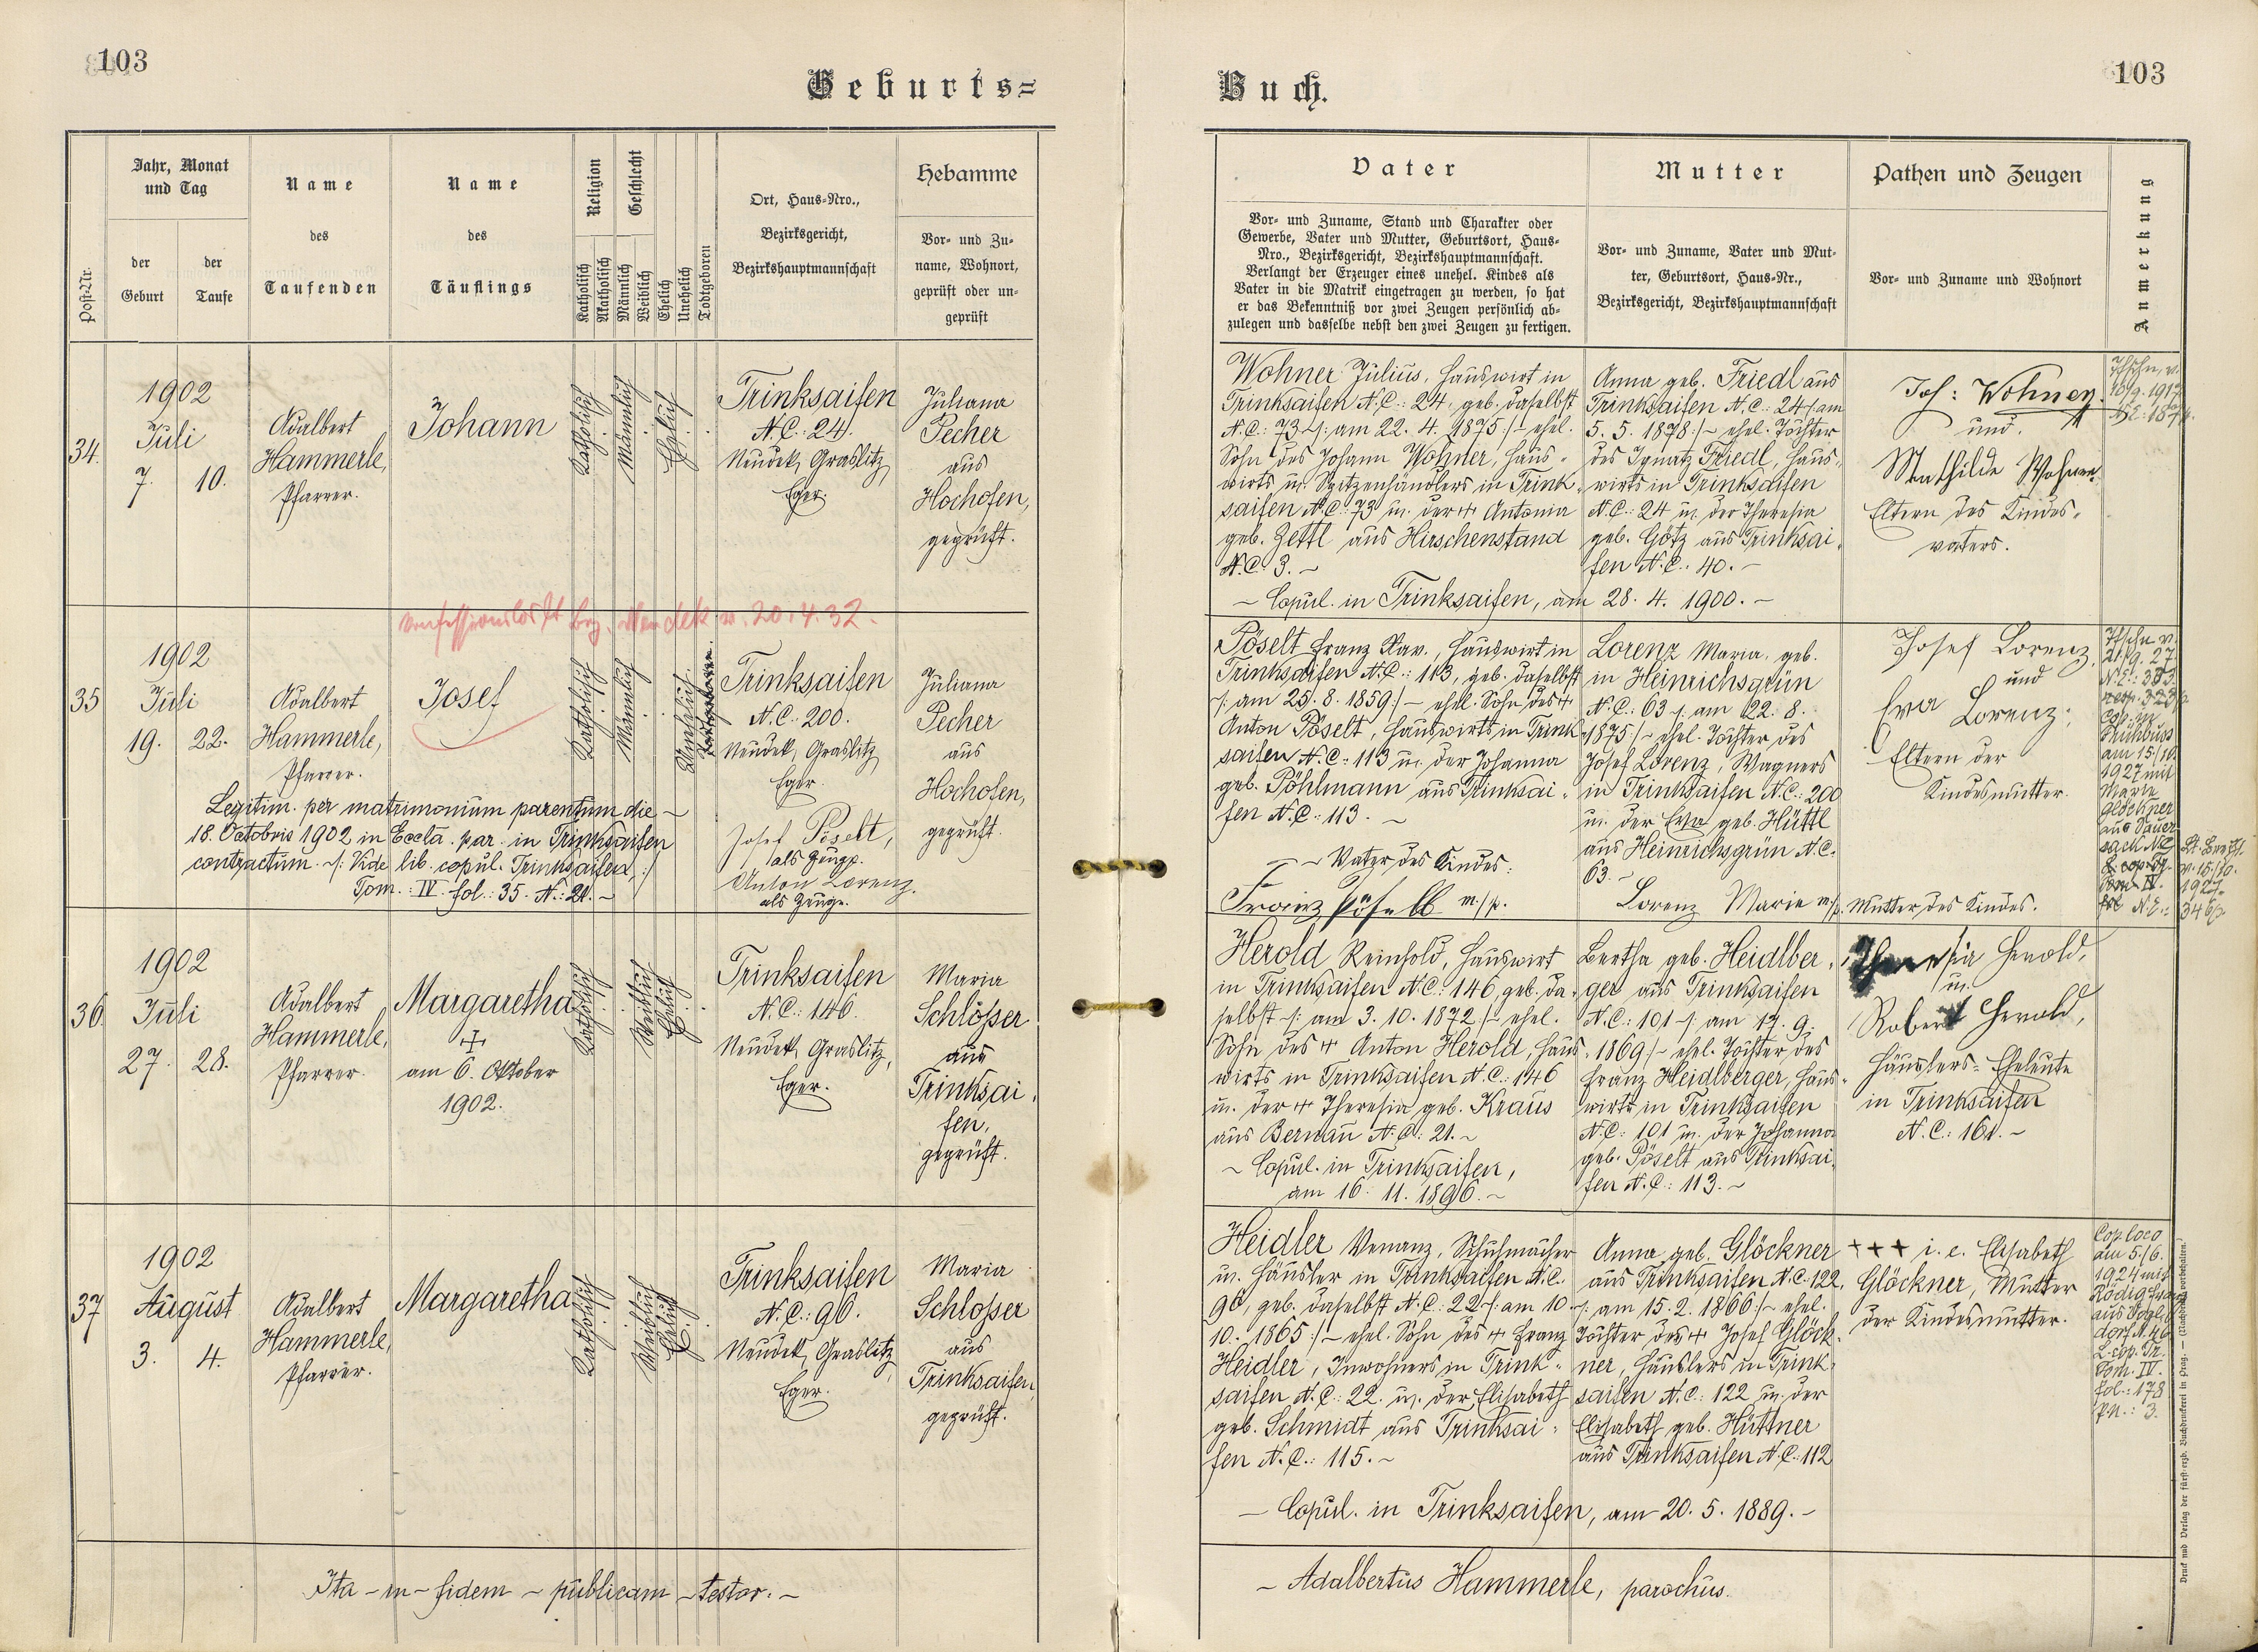 103
Geburts=
Post-Nr.
Jahr, Monat
und Tag
der
Geburt
der
Taufe
Name
des
Taufenden
Name
des
Täuflings
Religion
Katholisch
Akatholisch
Geschlecht
Männlich
Weiblich
Ehelich
Unehelich
Todtgeboren
Ort, Haus-Nro.,
Bezirksgericht,
Bezirkshauptmannschaft
Hebamme
Vor- und Zu-
name, Wohnort,
geprüft oder un-
geprüft
34.
1902
Juli
7. 10.
Adalbert
Hammerle,
Pfarrer.
Johann
Katholisch
Männlich
Ehelich
Trinksaifen
N.C.: 24.
Neudek, Graslitz,
Eger.
Juliana
Pecher
aus
Hochofen,
geprüft.
v. 20.4.32.
35
1902
Juli
19. 22.
Adalbert
Hammerle,
Pfarrer.
Josef
Katholisch
Männlich
Unehelich
Trinksaifen
N.C.: 200.
Neudek, Graslitz,
Eger.
Juliana
Pecher
aus
Hochofen,
geprüft.
Legitim. per matrimonium parentum die ~
18. Octobris 1902 in Eccla. par. in Trinksaifen
contractum. ~/: Vide lib. copul. Trinksaifen, :/
Tom.: IV. fol.: 35. N.: 21. ~
Josef Pöselt,
als Zeuge.
Anton Lorenz.
als Zeuge.
36.
1902
Juli
27. 28.
Adalbert
Hammerle,
Pfarrer.
Margaretha
+
am 6. Oktober
1902.
Katholisch
Weiblich
Ehelich
Trinksaifen
N.C.: 146.
Neudek, Graslitz,
Eger.
Maria
Schlößer
aus
Trinksai,
fen,
geprüft.
37
1902
August
3. 4.
Adalbert
Hammerle,
Pfarrer.
Margaretha
Katholisch
Weiblich
Ehelich
Trinksaifen
N.C.: 96.
Neudek, Graslitz,
Eger.
Maria
Schloßer
aus
Trinksaifen,
geprüft.
Ita – in – fidem – publicam – testor. –
103
Buch.
Vater
Vor- und Zuname, Stand und Charakter oder
Gewerbe, Vater und Mutter, Geburtsort, Haus-
Nro., Bezirksgericht, Bezirkshauptmannschaft.
Verlangt der Erzeuger eines unehel. Kindes als
Vater in die Matrik eingetragen zu werden, so hat
er das Bekenntniß vor zwei Zeugen persönlich ab-
zulegen und dasselbe nebst den zwei Zeugen zu fertigen.
Mutter
Vor- und Zuname, Vater und Mut-
ter, Geburtsort, Haus-Nr.,
Bezirksgericht, Bezirkshauptmannschaft
Pathen und Zeugen
Vor- und Zuname und Wohnort
Anmerkung
Wohner Julius, Hauswirt in
Trinksaifen N.C.: 24, geb. daselbst
N.C.: 73 ~/: am 22. 4. 1875 :/~ ehel.
Sohn des Johann Wohner, Haus-
wirts u. Spitzenhändlers in Trink-
saifen N.C.: 73 u. der + Antonia
geb. Zettl aus Hirschenstand
N.C.: 3. ~
Anna geb. Friedl aus
Trinksaifen N.C.: 24 /: am
5. 5. 1878 :/~ ehel. Tochter
des Ignatz Friedl, Haus-
wirts in Trinksaifen
N.C.: 24 u. der Theresia
geb. Götz aus Trinksai-
fen N.C.: 40. ~
~ Copul. in Trinksaifen, am 28. 4. 1900. ~
Joh: Wohner
und
Mathilde Wohner
Eltern des Kindes-
vaters.
Pöselt Franz Xav., Hauswirt in
Trinksaifen N.C.: 113, geb. daselbst
/: am 25. 8. 1859 :/~ ehel. Sohn des +
Anton Pöselt, Hauswirts in Trink-
saifen N.C.: 113 u. der Johanna
geb. Pöhlmann aus Trinksai-
fen N.C.: 113. ~
~ Vater des Kindes:
Franz Pöselt m/p.
Lorenz Maria, geb.
in Heinrichsgrün
N.C.: 63 /: am 22. 8.
1875 :/~ ehel. Tochter des
Josef Lorenz, Wagners
in Trinksaifen N.C.: 200
u. der Eva geb. Hüttl
aus Heinrichsgrün N.C.
63. ~
Lorenz Marie m/p. Mutter des Kindes.
Josef Lorenz,
und
Eva Lorenz;
Eltern der
Kindesmutter.
am 15./10.
1927 mit
Marie
Glöckner
Herold Reinhold, Hauswirt
in Trinksaifen N.C.: 146, geb. da-
selbst ~/: am 3. 10. 1872 :/~ ehel.
Sohn des + Anton Herold, Haus-
wirts in Trinksaifen N.C.: 146
u. der + Theresia geb. Kraus
aus Bernau N.C.: 21. ~
~ Copul. in Trinksaifen,
am 16. 11. 1896. ~
Bertha geb. Heidlber-
ger aus Trinksaifen
N.C.: 101 ~/: am 17. 9.
1869 :/~ ehel. Tochter des
Franz Heidlberger, Haus-
wirts in Trinksaifen
N.C.: 101 u. der Johanna
geb. Pöselt aus Trinksai-
fen N.C.: 113. ~
Theresia Herold,
u.
Robert Herold,
Häuslers-Eheleute
in Trinksaifen
N.C.: 161. ~
Heidler Venanz, Schuhmacher
u. Häusler in Trinksaifen N.C.
96, geb. daselbst N.C.: 22 ~/: am 10.
10. 1865 :/~ ehel. Sohn des + Franz
Heidler, Inwohners in Trink-
saifen N.C.: 22. u. der Elisabeth
geb. Schmidt aus Trinksai-
fen N.C.: 115. ~
Anna geb. Glöckner
aus Trinksaifen N.C.: 122,
/: am 15. 2. 1866 :/~ ehel.
Tochter des + Josef Glöck-
ner, Häuslers in Trink-
saifen N.C.: 122 u. der
Elisabeth geb. Hüttner
aus Trinksaifen N.C.: 112
+++ i. e. Elisabeth
Glöckner, Mutter
der Kindesmutter.
Cop. loco
am 5./6.
1924 mit
L. cop. Tr.
Tom. IV.
fol.: 178
p.n.: 3.
– Copul. in Trinksaifen, am 20. 5. 1889. –
~ Adalbertus Hammerle, parochus.
Druck und Verlag der fürst-erzb. Buchdruckerei in Prag. — (Nachdruck vorbehalten.)